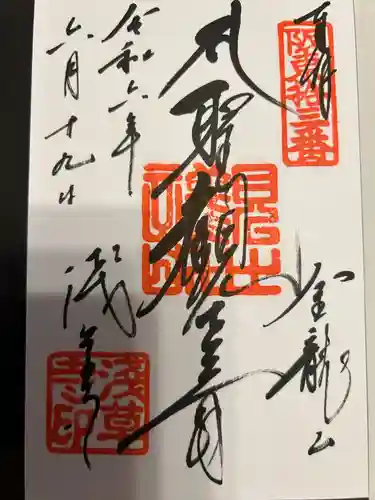 奉拝
阪東拾三番
金龍山
聖観世音
浅草寺
浅草寺印
令和六年
六月十九日